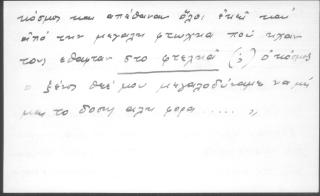 κόσμος και απέθαναν όλοι εκεί και
από την μεγάλη φτώχια που ηχαν
τους έθαφταν στο φτελιά (;) ο κόσμος
ο ξένος θεέ μου μεγαλοδύναμε να μή
μας το δόση άλλη φορά ..... „